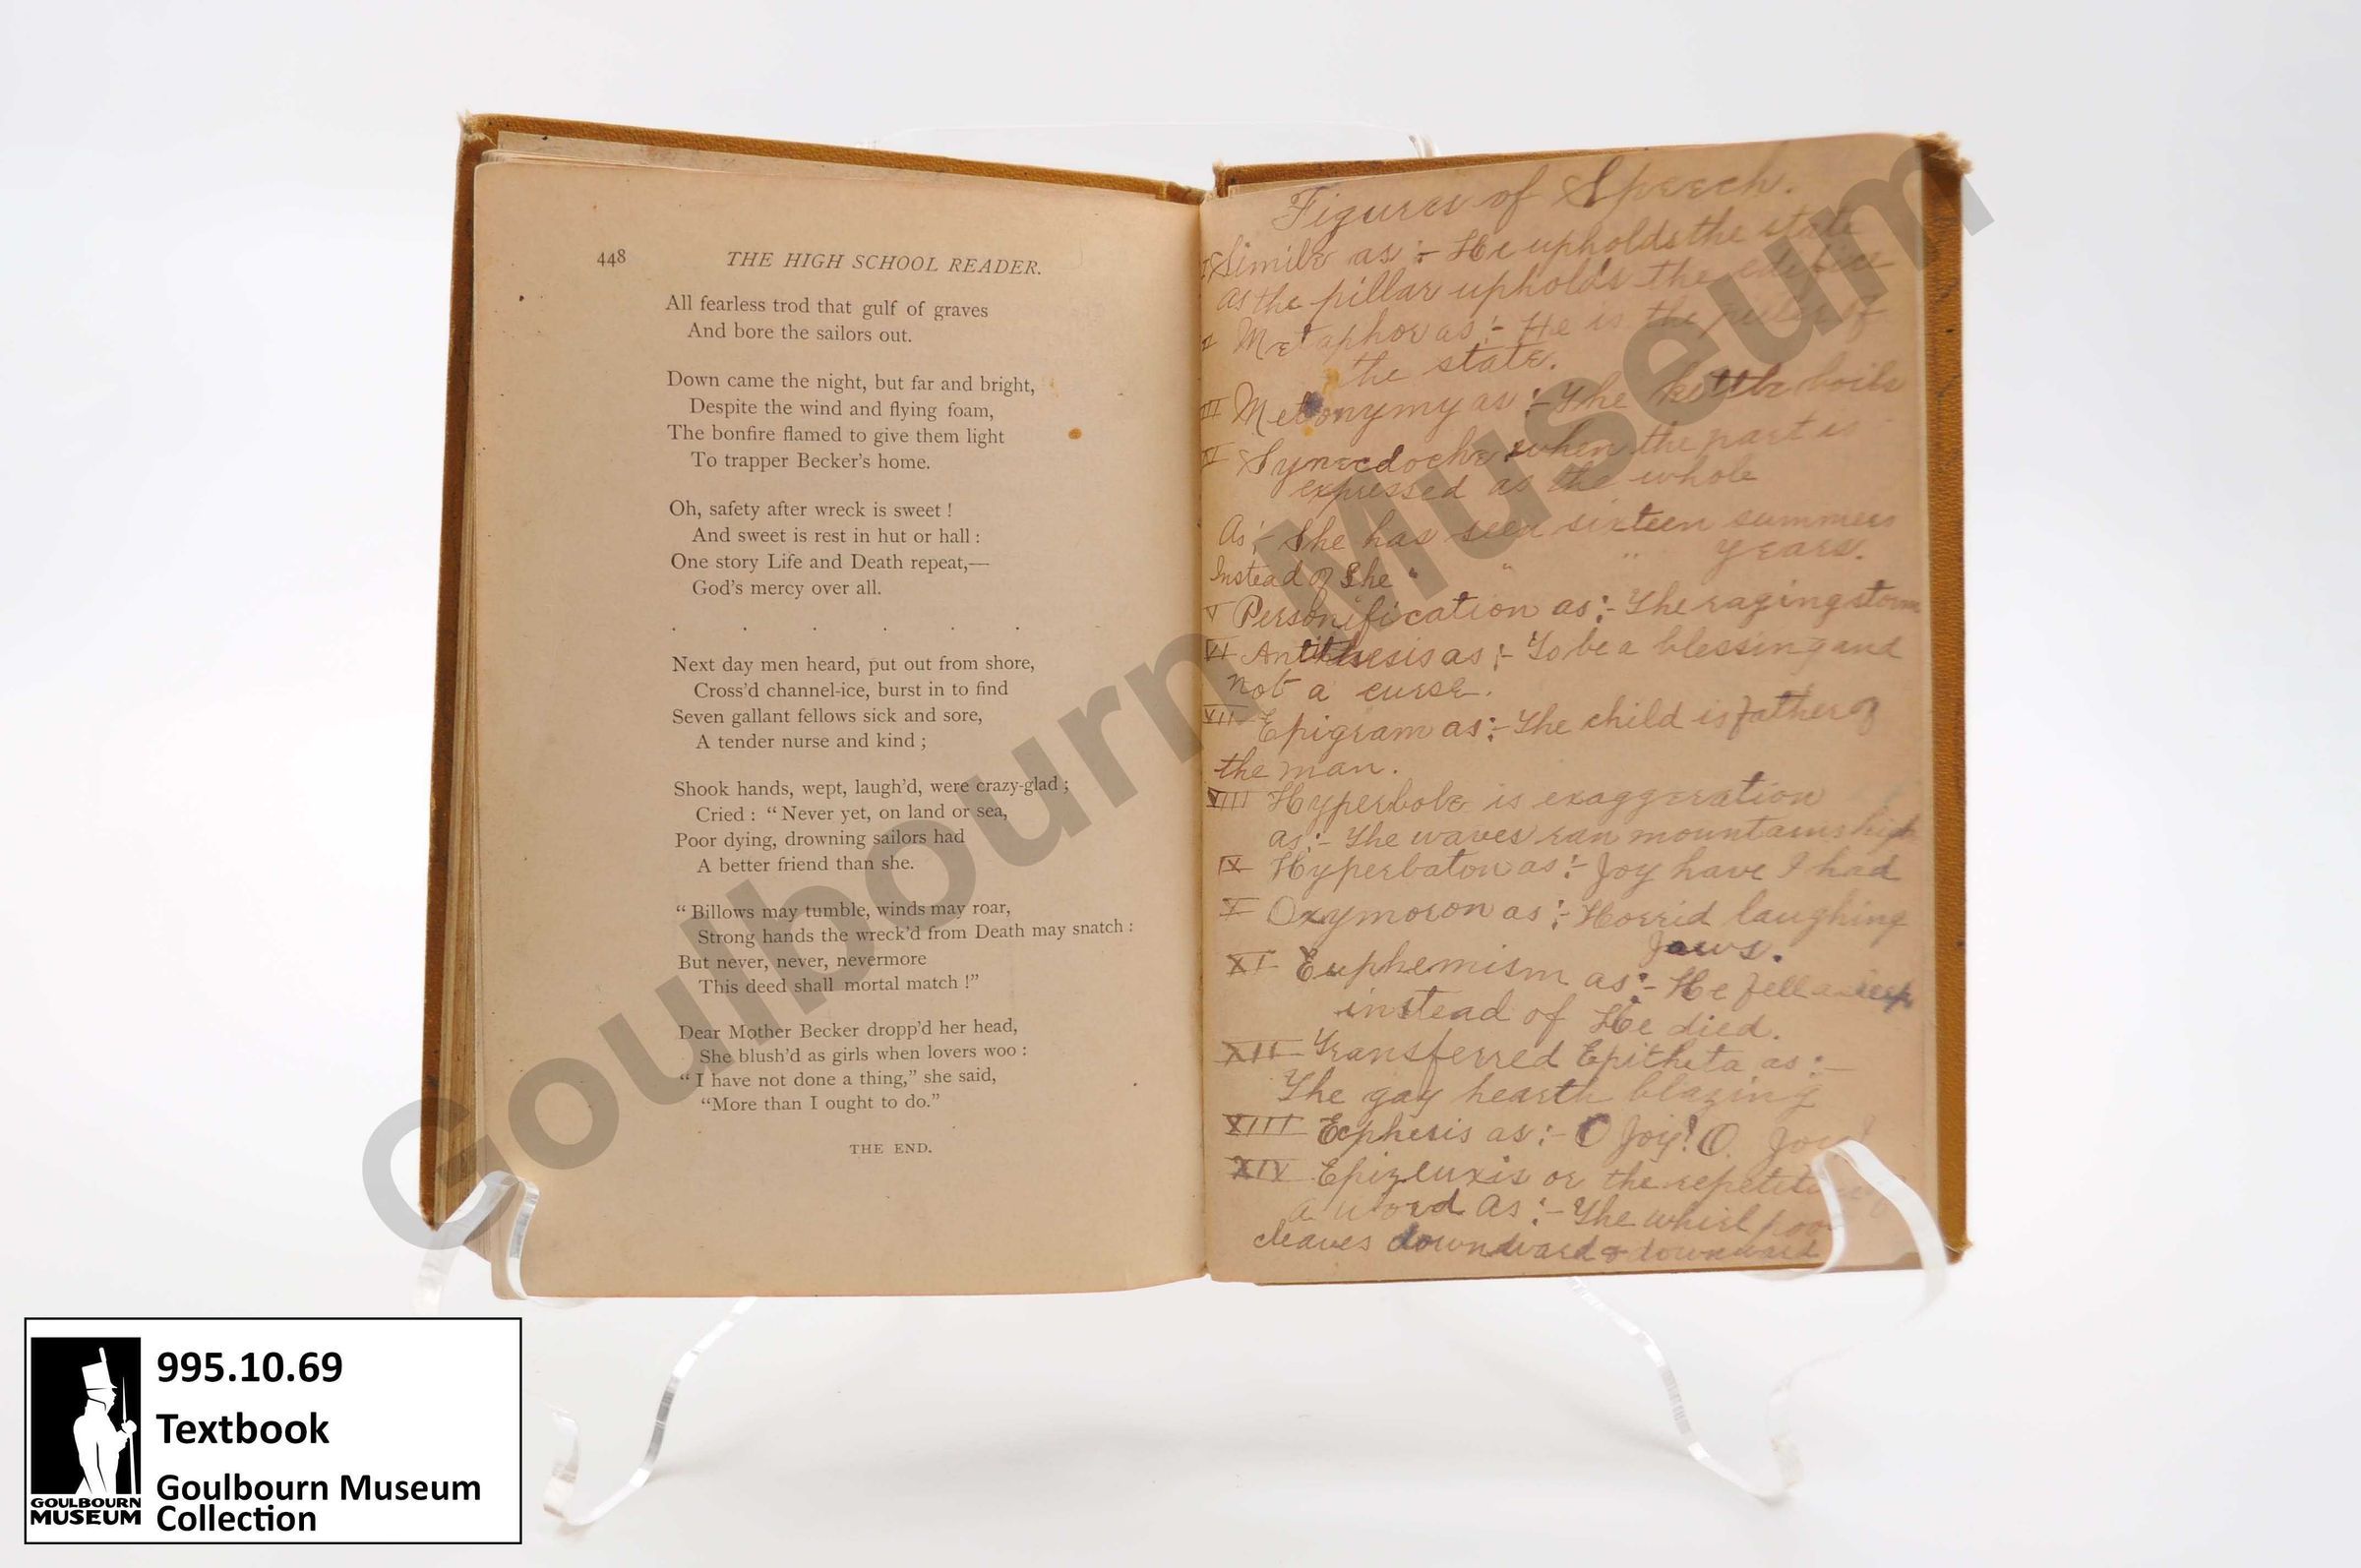 448 THE HIGH SCHOOL READER.
All fearless trod that gulf of graves
And bore the sailors out.
Down came the night, but far and bright,
Despite the wind and flying foam,
The bonfire flamed to give them light
To trapper Becker's home.
Oh, safety after wreck is sweet !
And sweet is rest in hut or hall :
One story Life and Death repeat,—
God's mercy over all.
. . . . . .
Next day men heard, put out from shore,
Cross'd channel-ice, burst in to find
Seven gallant fellows sick and sore,
A tender nurse and kind ;
Shook hands, wept, laugh'd, were crazy-glad ;
Cried : " Never yet, on land or sea,
Poor dying, drowning sailors had
A better friend than she.
" Billows may tumble, winds may roar,
Strong hands the wreck'd from Death may snatch :
But never, never, nevermore
This deed shall mortal match !"
Dear Mother Becker dropp'd her head,
She blush'd as girls when lovers woo :
" I have not done a thing," she said,
"More than I ought to do."
THE END.
Figures of Speech.
I Simile as :- He upholds the state
as the pillar upholds the edifice
II Metaphor as :- He is the pillar of
the state.
III Metonymy as :- The kettle boils
IV Synecdoche when the part is
expressed as the whole
As :- She has seen sixteen summers
Instead of She " " " years.
V Personification as :- The raging storm
VI Antithesis as :- To be a blessing and
not a curse.
VII Epigram as :- The child is father of
the man.
VIII Hyperbole is exaggeration
as :- The waves ran mountains high
IX Hyperbaton as :- Joy have I had
X Oxymoron as :- Horrid laughing
Jaws.
XI Euphemism as :- He fell asleep
instead of He died.
XII Transferred Epitheta as :-
The gay hearth blazing
XIII Ecphesis as :- O Joy! O. Joy!
XIV Epizeuxis or the
a word As :- The whirl pool
cleaves downdward & downward
Goulbourn Museum
995.10.69
Textbook
Goulbourn Museum
Collection
GOULBOURN
MUSEUM